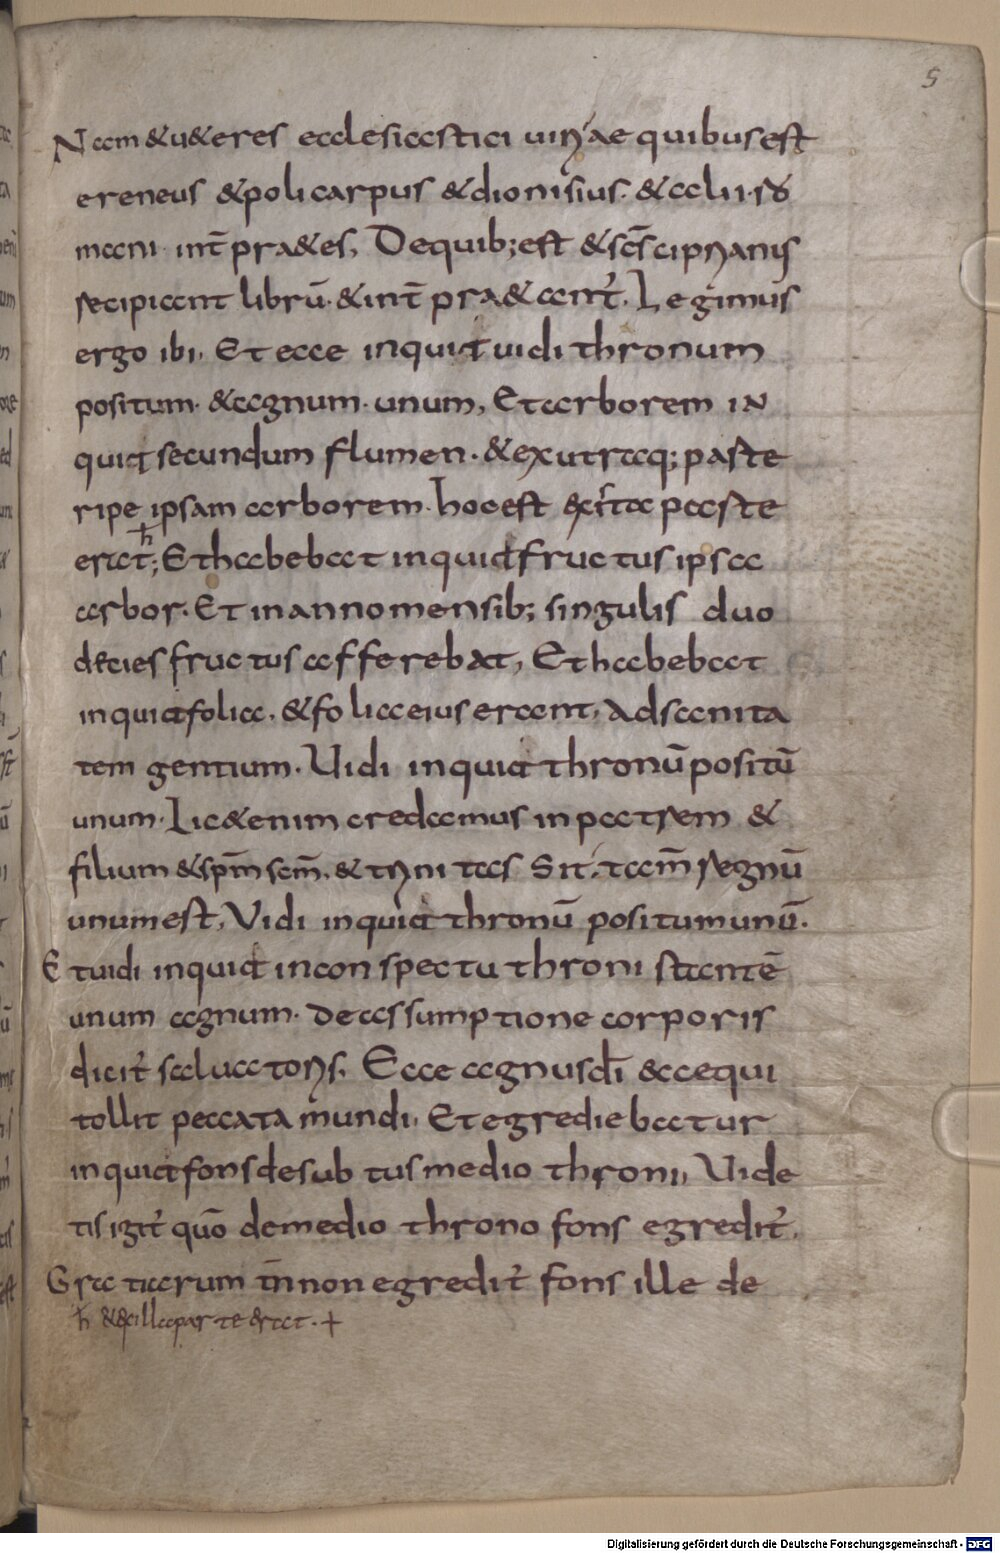 5
Nam & u&eres ecclesiastici uiri ae quibus est
ereneus & policarpus & dionisius. & alii. ro
mani. int̄ pra&es, De quib; est & scs̄ ciprianus
recipiant librū. & int̄ pra&ant̛. Legimus
ergo ibi, Et ecce inquit uidi thronum
positum. & agnum. unum, Et arborem in
quit secundum flumen. & ex utraq; parte
ripe ipsam arborem. hoc est & citra parte
erat; Et habebat inquit fructus ipsa
arbor. Et in anno mensib; singulis duo
decies fructus afferebat, Et habebat
inquit folia. & folia eius erant, Ad sanita
tem gentium. Uidi inquit thronū positū
unum. Lic& enim credamus in patrem &
filium & spm̄ scm̄. & trini tas sit. tam̄ regnū
unum est, Vidi inquit thronū positum unū.
Et uidi inquit in conspectu throni stantē
unum agnum. De assumptione corporis
dicit̛ saluatoris. Ecce agnus dī & ce qui
tollit peccata mundi, Et egrediebatur
inquit fons de subtus medio throni, Uide
tis igit̛ quō de medio throno fons egredit̛.
Gratiarum īn non egredit̛ fons ille de
ħ & ex illa parte erat. +
Digitalisierung gefördert durch die Deutsche Forschungsgemeinschaft - DFG